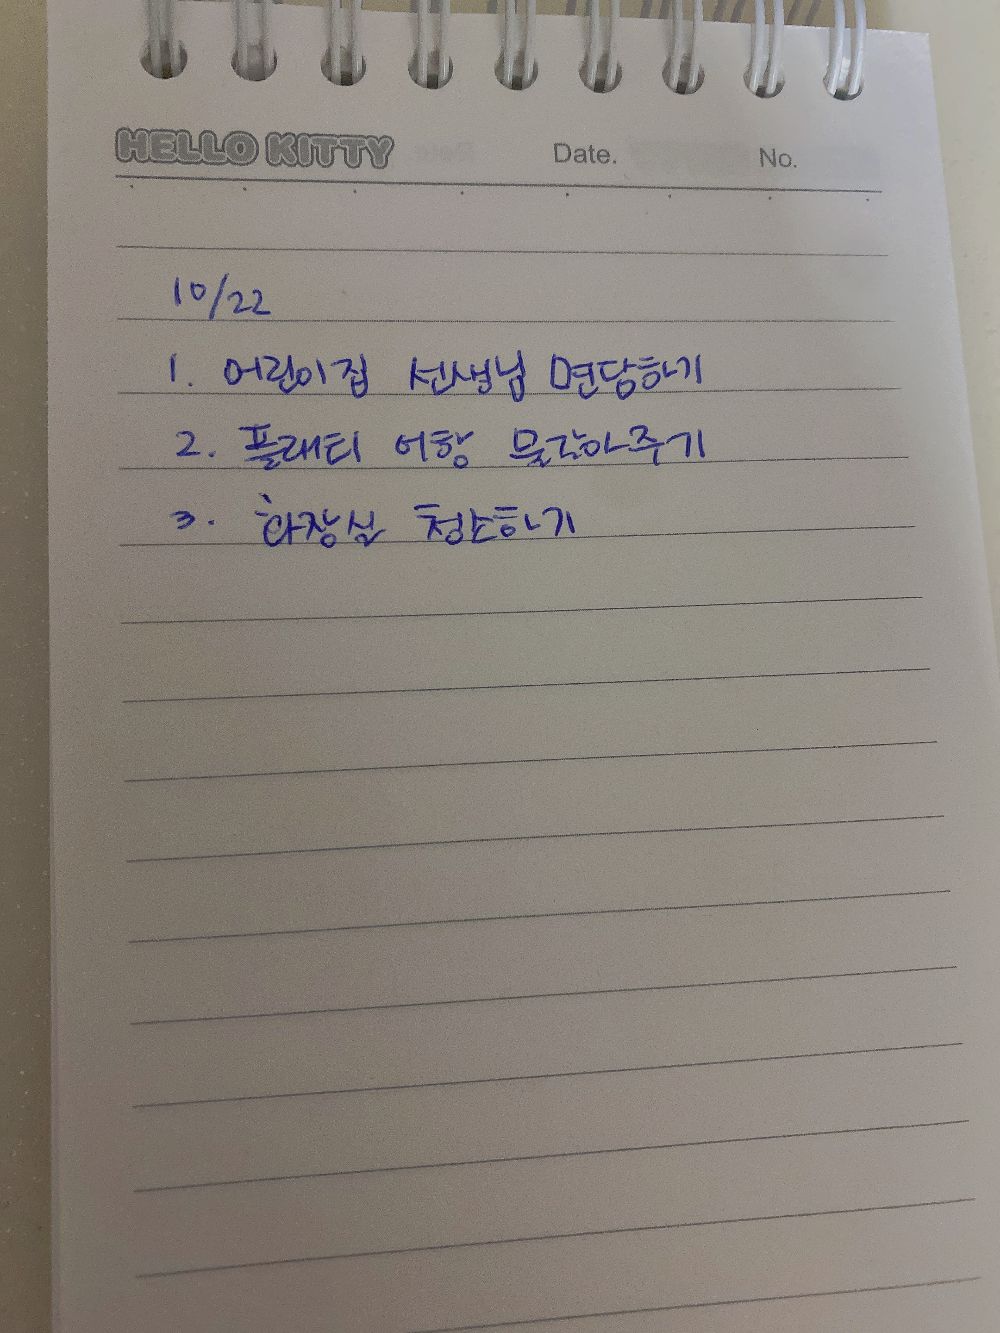 HELLO KITTY Date. No.
10/22
1. 어린이집 선생님 면담하기
2. 플래티 어항 물갈아주기
3. 화장실 청소하기